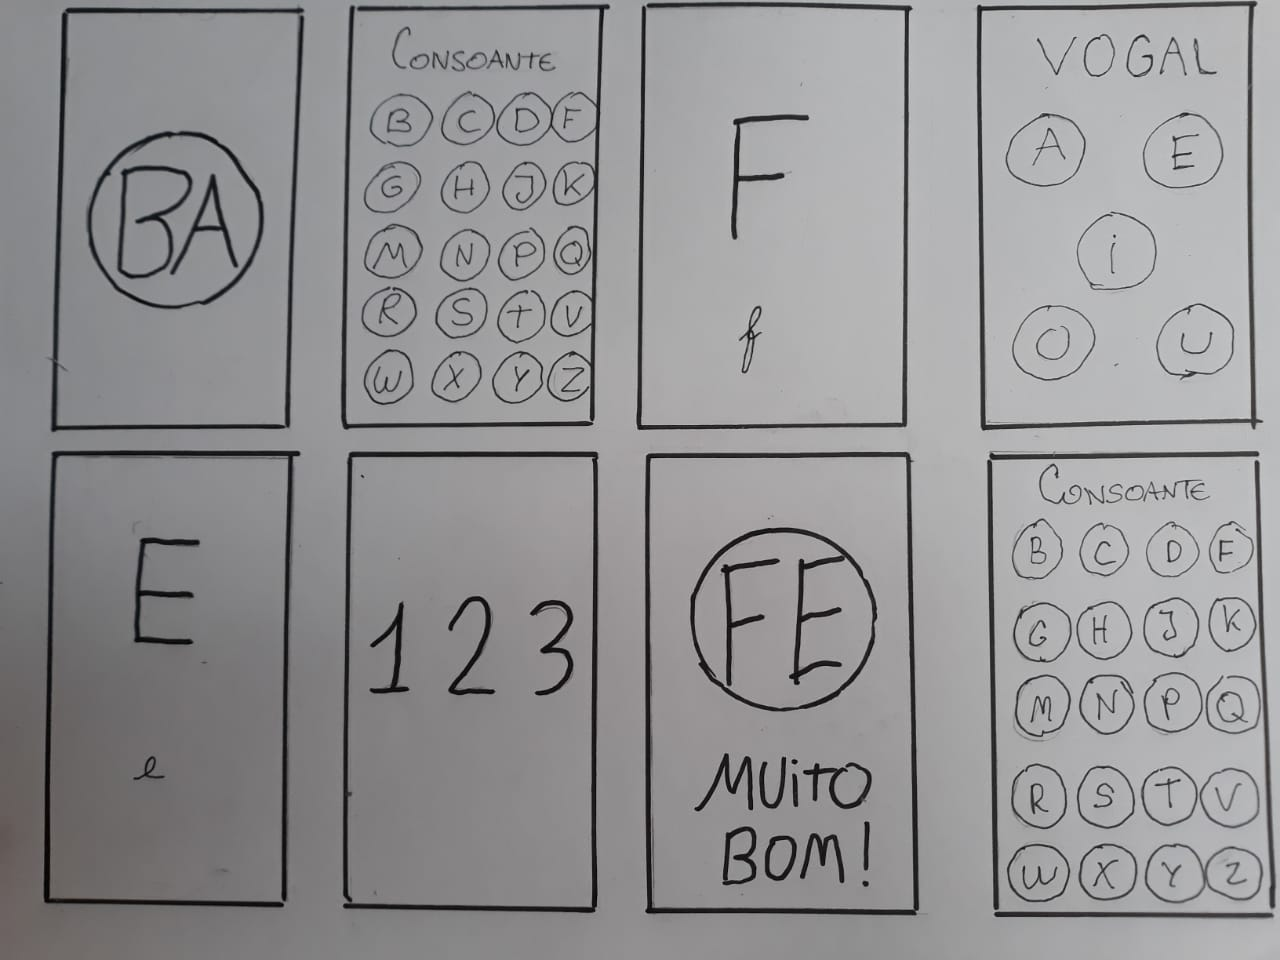 BA
CONSOANTE
B C D F
G H J K
M N P Q
R S T V
W X Y Z
F
f
VOGAL
A E
i
O U
E
e
1 2 3
FE
MUiTO
BOM!
CONSOANTE
B C D F
G H J K
M N P Q
R S T V
W X Y Z